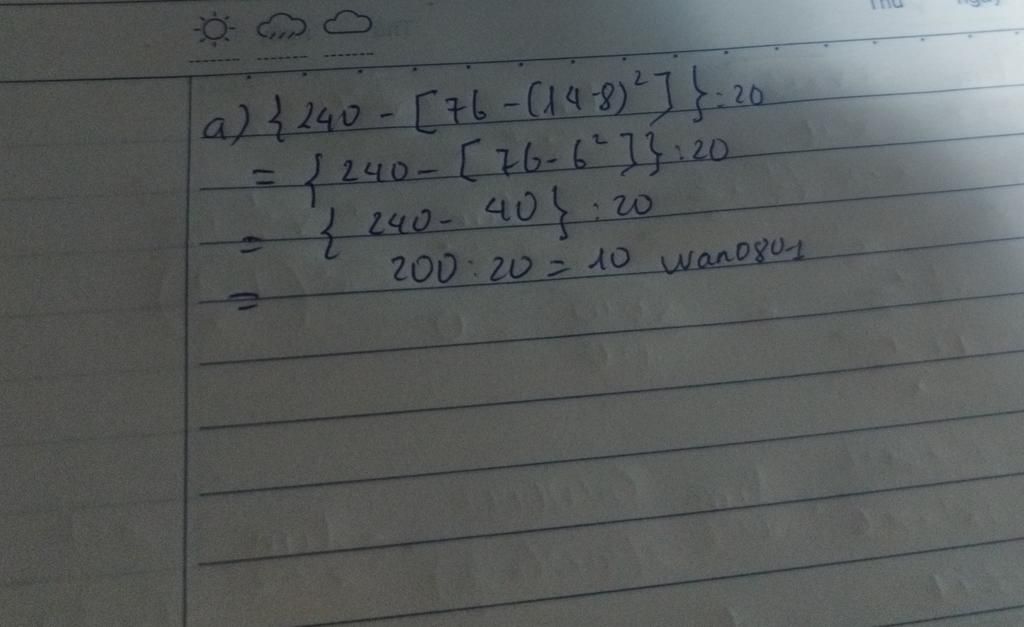 Thu Ngày
a) {240 - [76 - (14-8)²]} : 20
= {240 - [76 - 6²]} : 20
= {240 - 40} : 20
= 200 : 20 = 10 wan0801